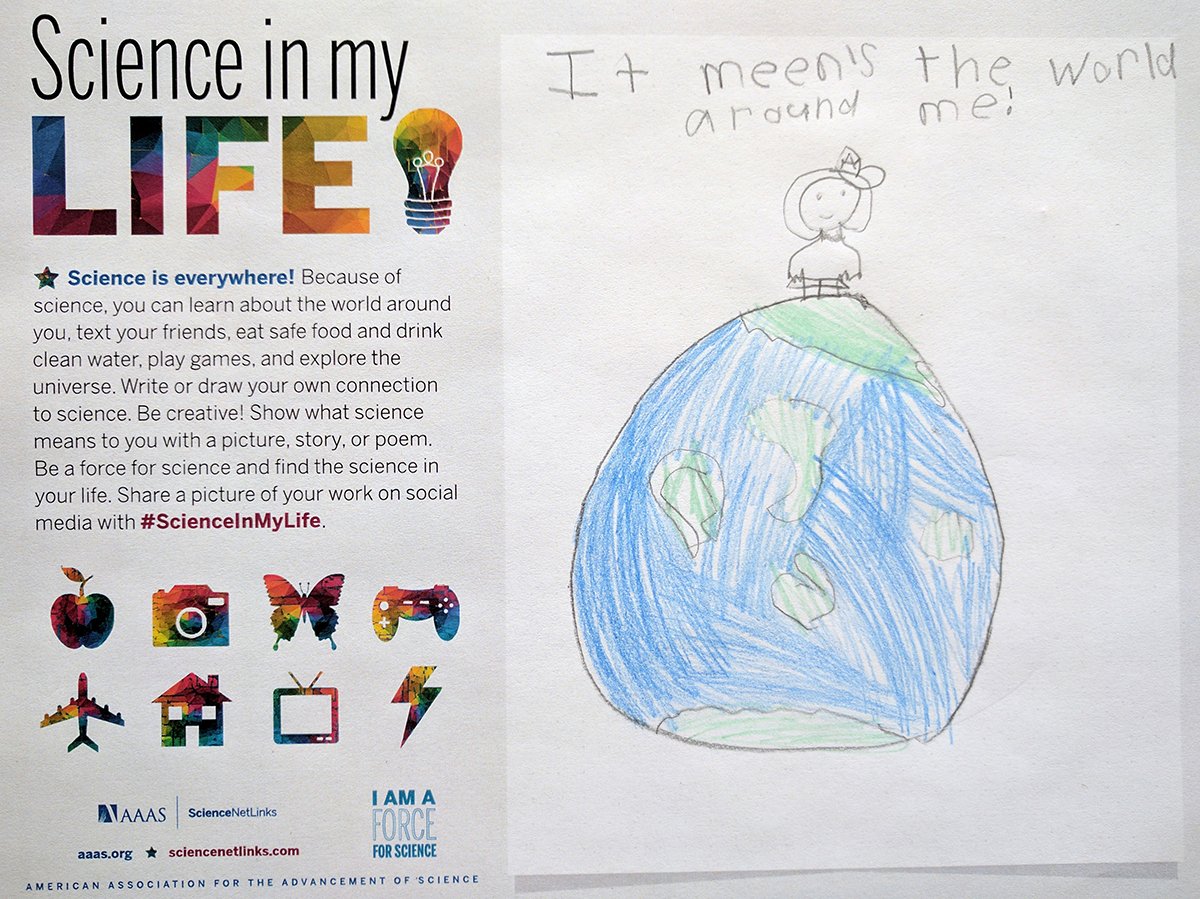 Science in my
LIFE
Science is everywhere! Because of
science, you can learn about the world around
you, text your friends, eat safe food and drink
clean water, play games, and explore the
universe. Write or draw your own connection
to science. Be creative! Show what science
means to you with a picture, story, or poem.
Be a force for science and find the science in
your life. Share a picture of your work on social
media with #ScienceInMyLife.
AAAS ScienceNetLinks
aaas.org sciencenetlinks.com
I AM A
FORCE
FOR SCIENCE
AMERICAN ASSOCIATION FOR THE ADVANCEMENT OF SCIENCE
It meen's the world
around me!
A